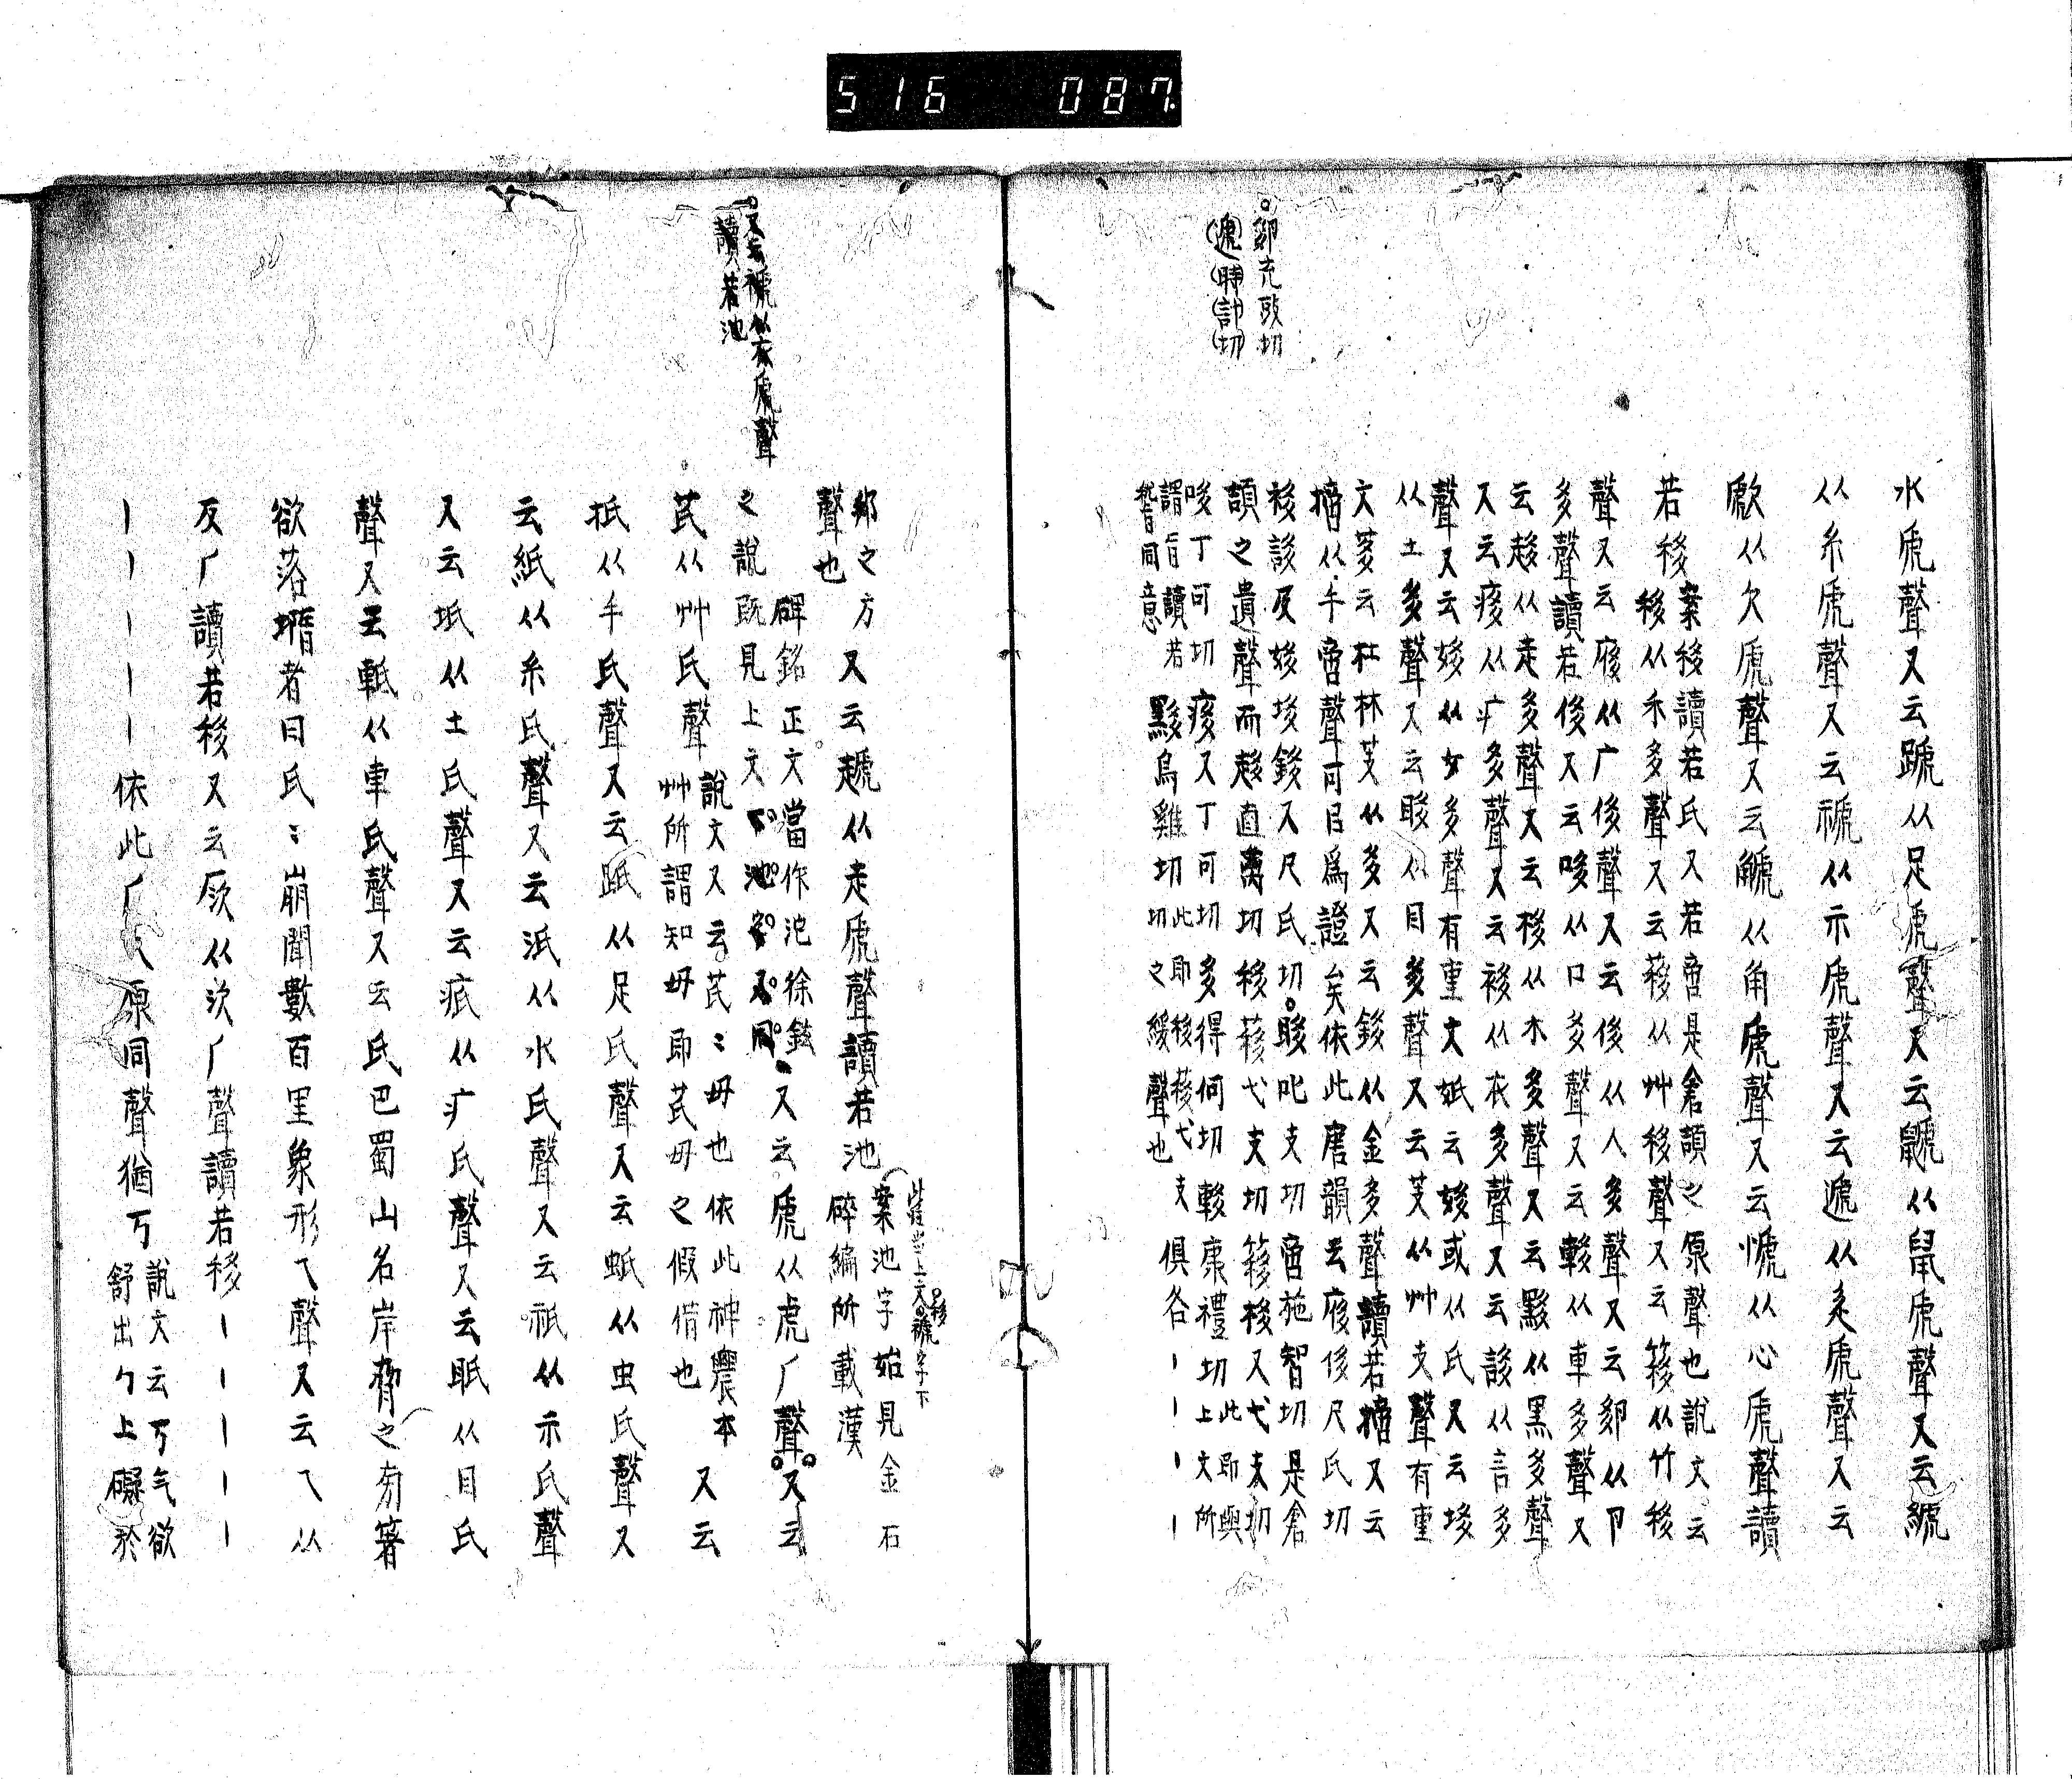 516 087
水虒聲又云蹏从足虒聲又云鼶从鼠虒聲又云䌳
从糸虒聲又云禠从示虒聲又云遞从辵虒聲又云
歋从欠虒聲又云䚦从角虒聲又云㥴从心虒聲讀
若移
案移讀若氏又若啻是倉頡之原聲也說文云
移从禾多聲又云蓚从艸移聲又云簃从竹移
聲又云㢋从广侈聲又云侈从人多聲又云卶从卩
多聲讀若侈又云哆从口多聲又云䡔从車多聲又
云趍从走多聲又云栘从木多聲又云黟从黑多聲
又云痑从疒多聲又云袳从衣多聲又云誃从言多
聲又云姼从女多聲有重文妷云姼或从氏又云垑
从土多聲又云眵从目多聲又云芰从艸支聲有重
文茤云杜林芰从多又云鉹从金多聲讀若摘又云
摘从手啻聲可㠯爲證矣依此唐韻云㢋侈尺氏切
袳誃及姼垑鉹又尺氏切眵叱支切啻施智切是倉
頡之遺聲而趍直离切移蓚弋支切簃栘又弋支切
哆丁可切痑又丁可切多得何切䡔康禮切此即與上文所
謂旨讀若黟烏雞切此即移蓚弋支俱各丨丨丨丨
䭫同意切之緩聲也
卶充豉切
遞時計切
鄒之方又云䞾从走虒聲讀若池
案池字始見金石
聲也
碎編所載漢
此當上文禠字下
移
碑銘正文當作沱徐鉉
之說旣見上文
又云虒从虎厂聲又云
芪从艸氏聲
說文又云芪芪毋也依此神農本
艸所謂知毋即芪毋之假借也
又云
又云褫从衣虒聲
讀若池
抵从手氏聲又云䟡从足氏聲又云蚔从虫氏聲又
云紙从糸氏聲又云汦从水氏聲又云祇从示氏聲
又云坻从土氏聲又云疧从疒氏聲又云眂从目氏
聲又云軝从車氏聲又云氏巴蜀山名岸脅之旁箸
欲落㙧者曰氏氏崩聞數百里象形乁聲又云乁从
反厂讀若移又云㳄从次厂聲讀若移丨丨丨丨丨
丨丨丨丨丨依此厂乁原同聲猶丂
說文云丂气欲
舒出勹上礙於